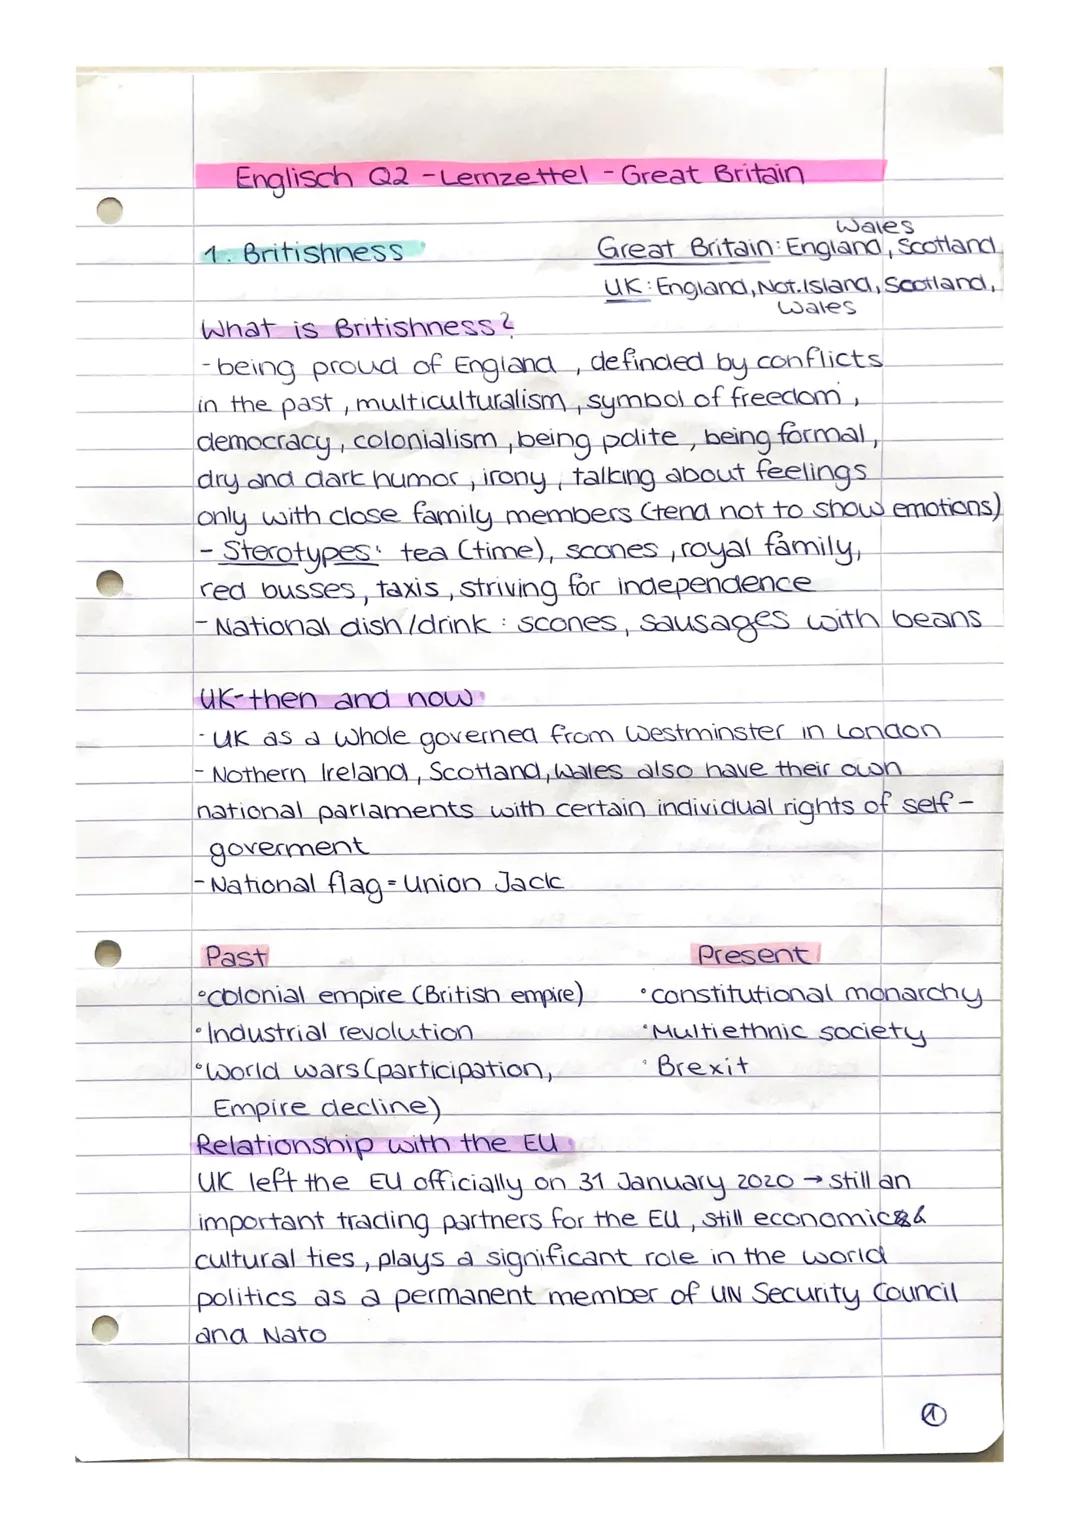 Englisch Q2 - Lernzettel - Great Britain
1. Britishness
Wales
Great Britain: England, Scotland
UK: England, Not.Island, Scotland,
Wales
What is Britishness?
- being proud of England, definded by conflicts
in the past, multiculturalism, symbol of freedom,
democracy, colonialism, being polite, being formal,
dry and dark humor, irony, talking about feelings
only with close family members (tend not to show emotions)
- Sterotypes: tea (time), scones, royal family,
red busses, taxis, striving for independence
- National dish/drink: scones, sausages with beans
UK-then and now
- UK as a whole governed from Westminster in London
- Nothern Ireland, Scotland, Wales also have their own
national parlaments with certain individual rights of self-
goverment
- National flag = Union Jack
Past
• colonial empire (British empire)
• Industrial revolution
• World wars (participation,
Empire decline)
Present
• constitutional monarchy
• Multiethnic society
• Brexit
Relationship with the EU
UK left the EU officially on 31 January 2020 → still an
important trading partners for the EU, still economic &
cultural ties, plays a significant role in the world
politics as a permanent member of UN Security Council
and Nato
1